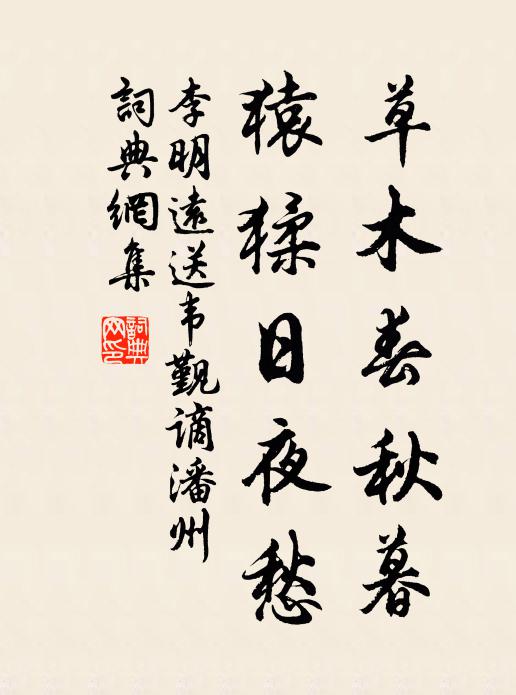 草木春秋暮
猿猱日夜愁
李明遠送韦觐谪潘州
詞典網集
詞典网印